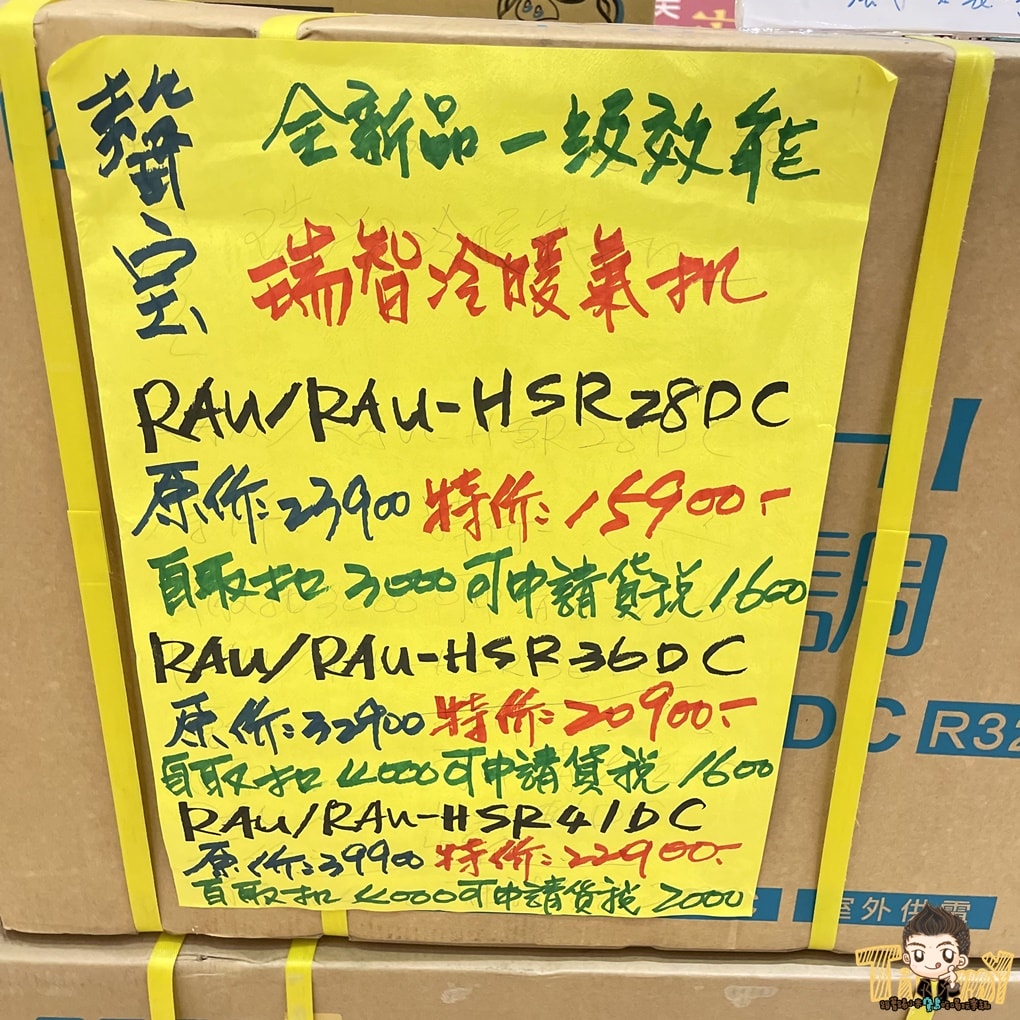 聲宝
全新品一級效能
瑞智冷暖氣机
RAU/RAU-HSR28DC
原价:23900 特价:15900.-
自取扣3000可申請貨税1600
RAU/RAU-HSR36DC
原价:32900 特价:20900.-
自取扣4000可申請貨税1600
RAU/RAU-HSR41DC
原价:39900 特价:22900.-
自取扣4000可申請貨税2000
調
DC R32
室外供電